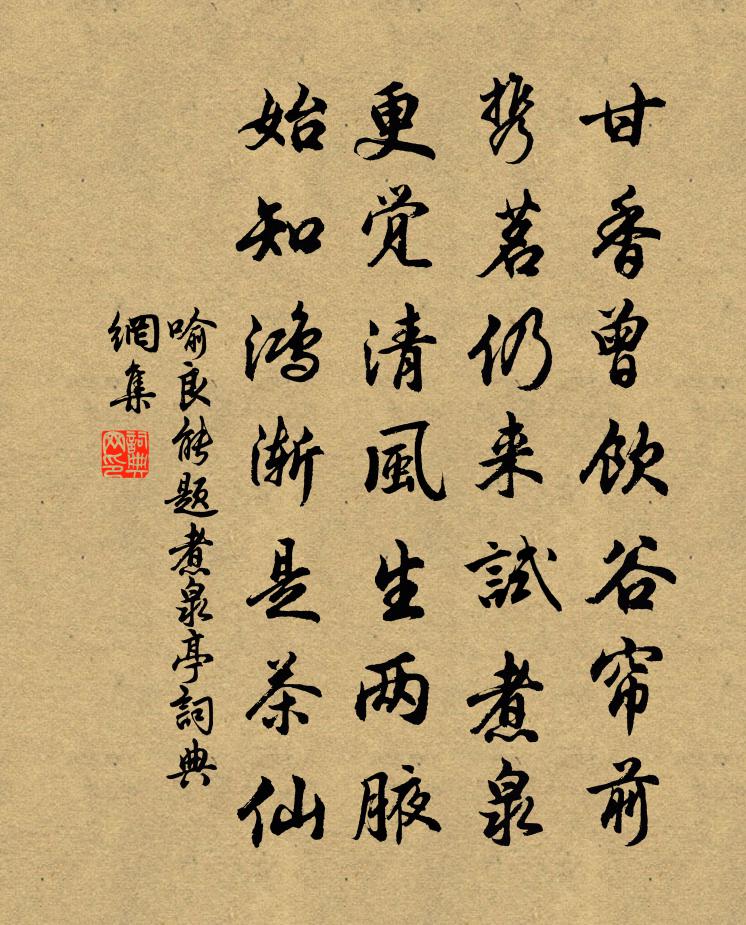 甘香曾饮谷帘前
携茗仍来試煮泉
更觉清風生两腋
始知鸿渐是茶仙
喻良能题煮泉亭詞典
網集
詞典
网印